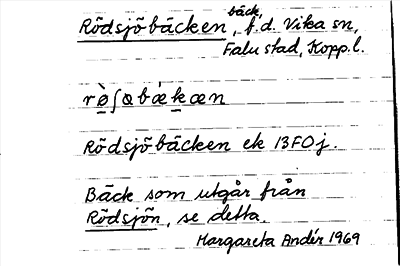 Rödsjöbäcken, bäck, f.d. Vika sn,
Falu stad, Kopp.l.
rø̀ʃɷbækæn
Rödsjöbäcken ek 13F0j.
Bäck som utgår från
Rödsjön, se detta.
Margareta Andér 1969